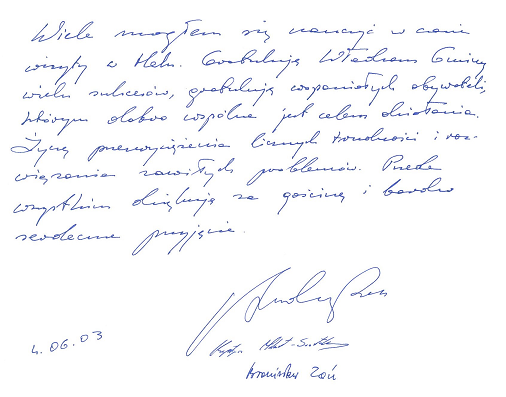 Wiele mogłem się nauczyć w czasie
wizyty w Helu. Gratuluję Władzom Gminy
wielu sukcesów, gratuluję wspaniałych obywateli,
którym dobro wspólne jest celem działania.
Życzę przezwyciężenia licznych trudności i roz-
wiązania zawiłych problemów. Przede
wszystkim dziękuję za gościnę i bardzo
serdeczne przyjęcie.
Andrzej
4.06.03
Krystyna
Bronisław Zoń